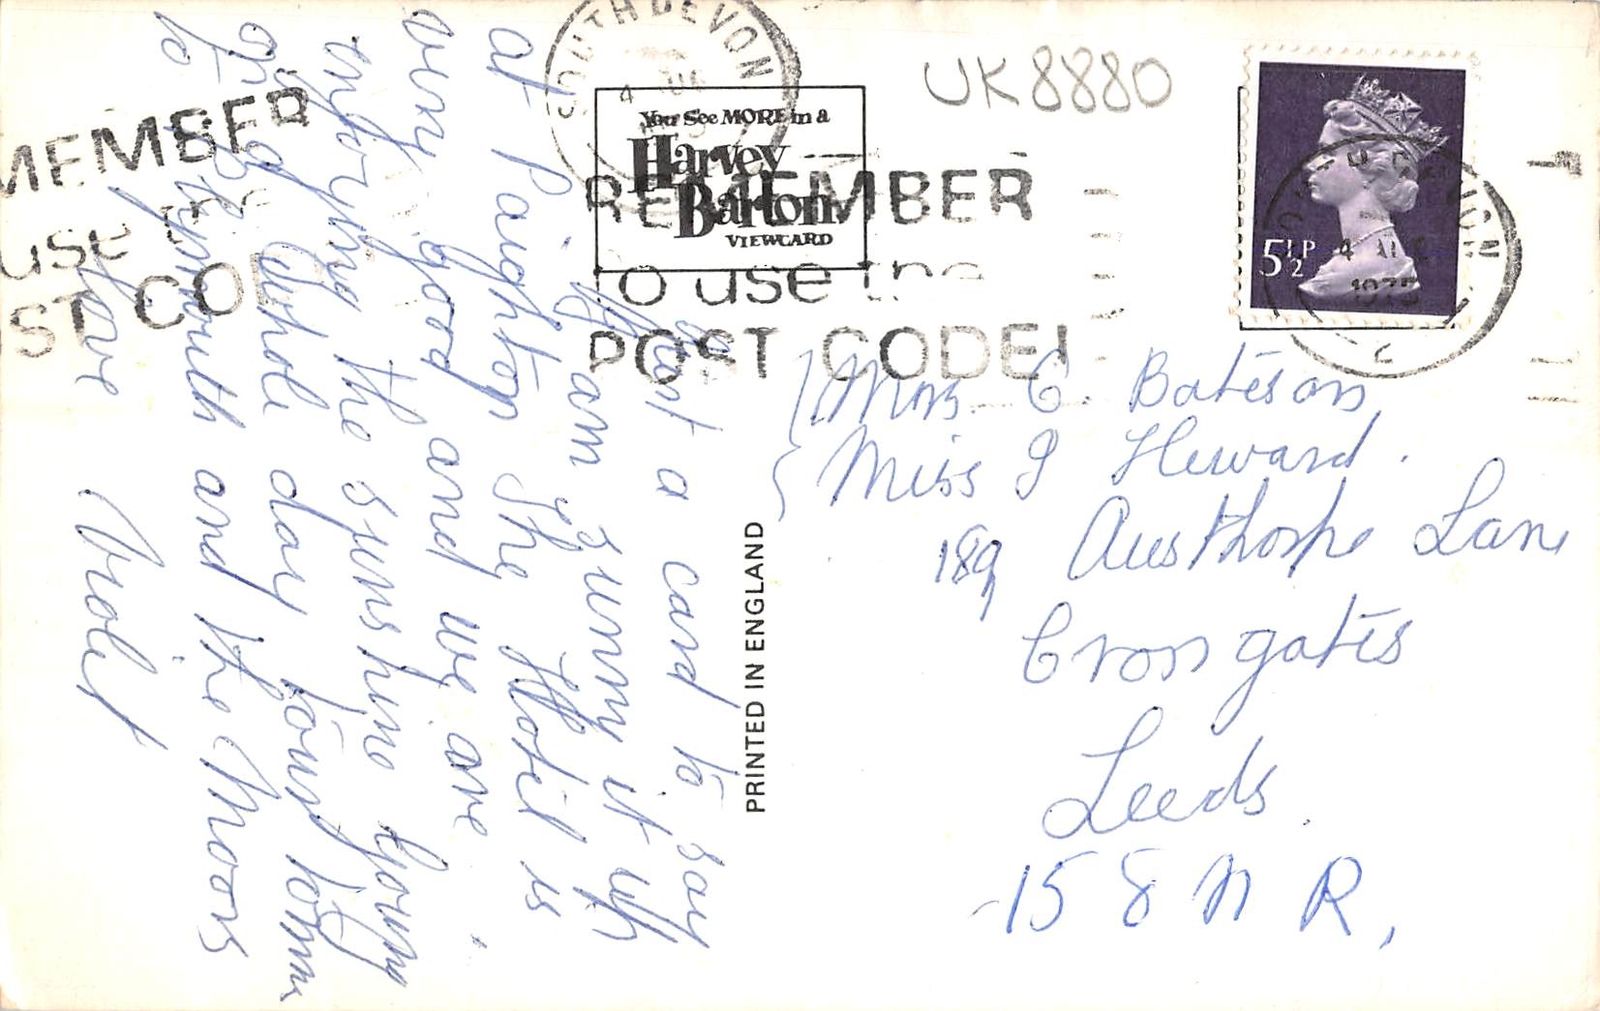 SOUTH DEVON
4
You See MORE in a
Harvey
Barton
VIEWCARD
UK8880
REMEMBER
to use the
POST CODE!
MEMBER
use the
ST COD
5½P
4
1975
PRINTED IN ENGLAND
Just a card to say
I am sunny it up
at Paighton The Hotel is
very good and we are
enjoying the sunshine Going
on a whole day tour tomw
to Plymouth and the Moors
Love Violet
Mrs C Bateson
Miss I Heward.
189 Austhorpe Lane
Crossgates
Leeds.
15 8 N R,